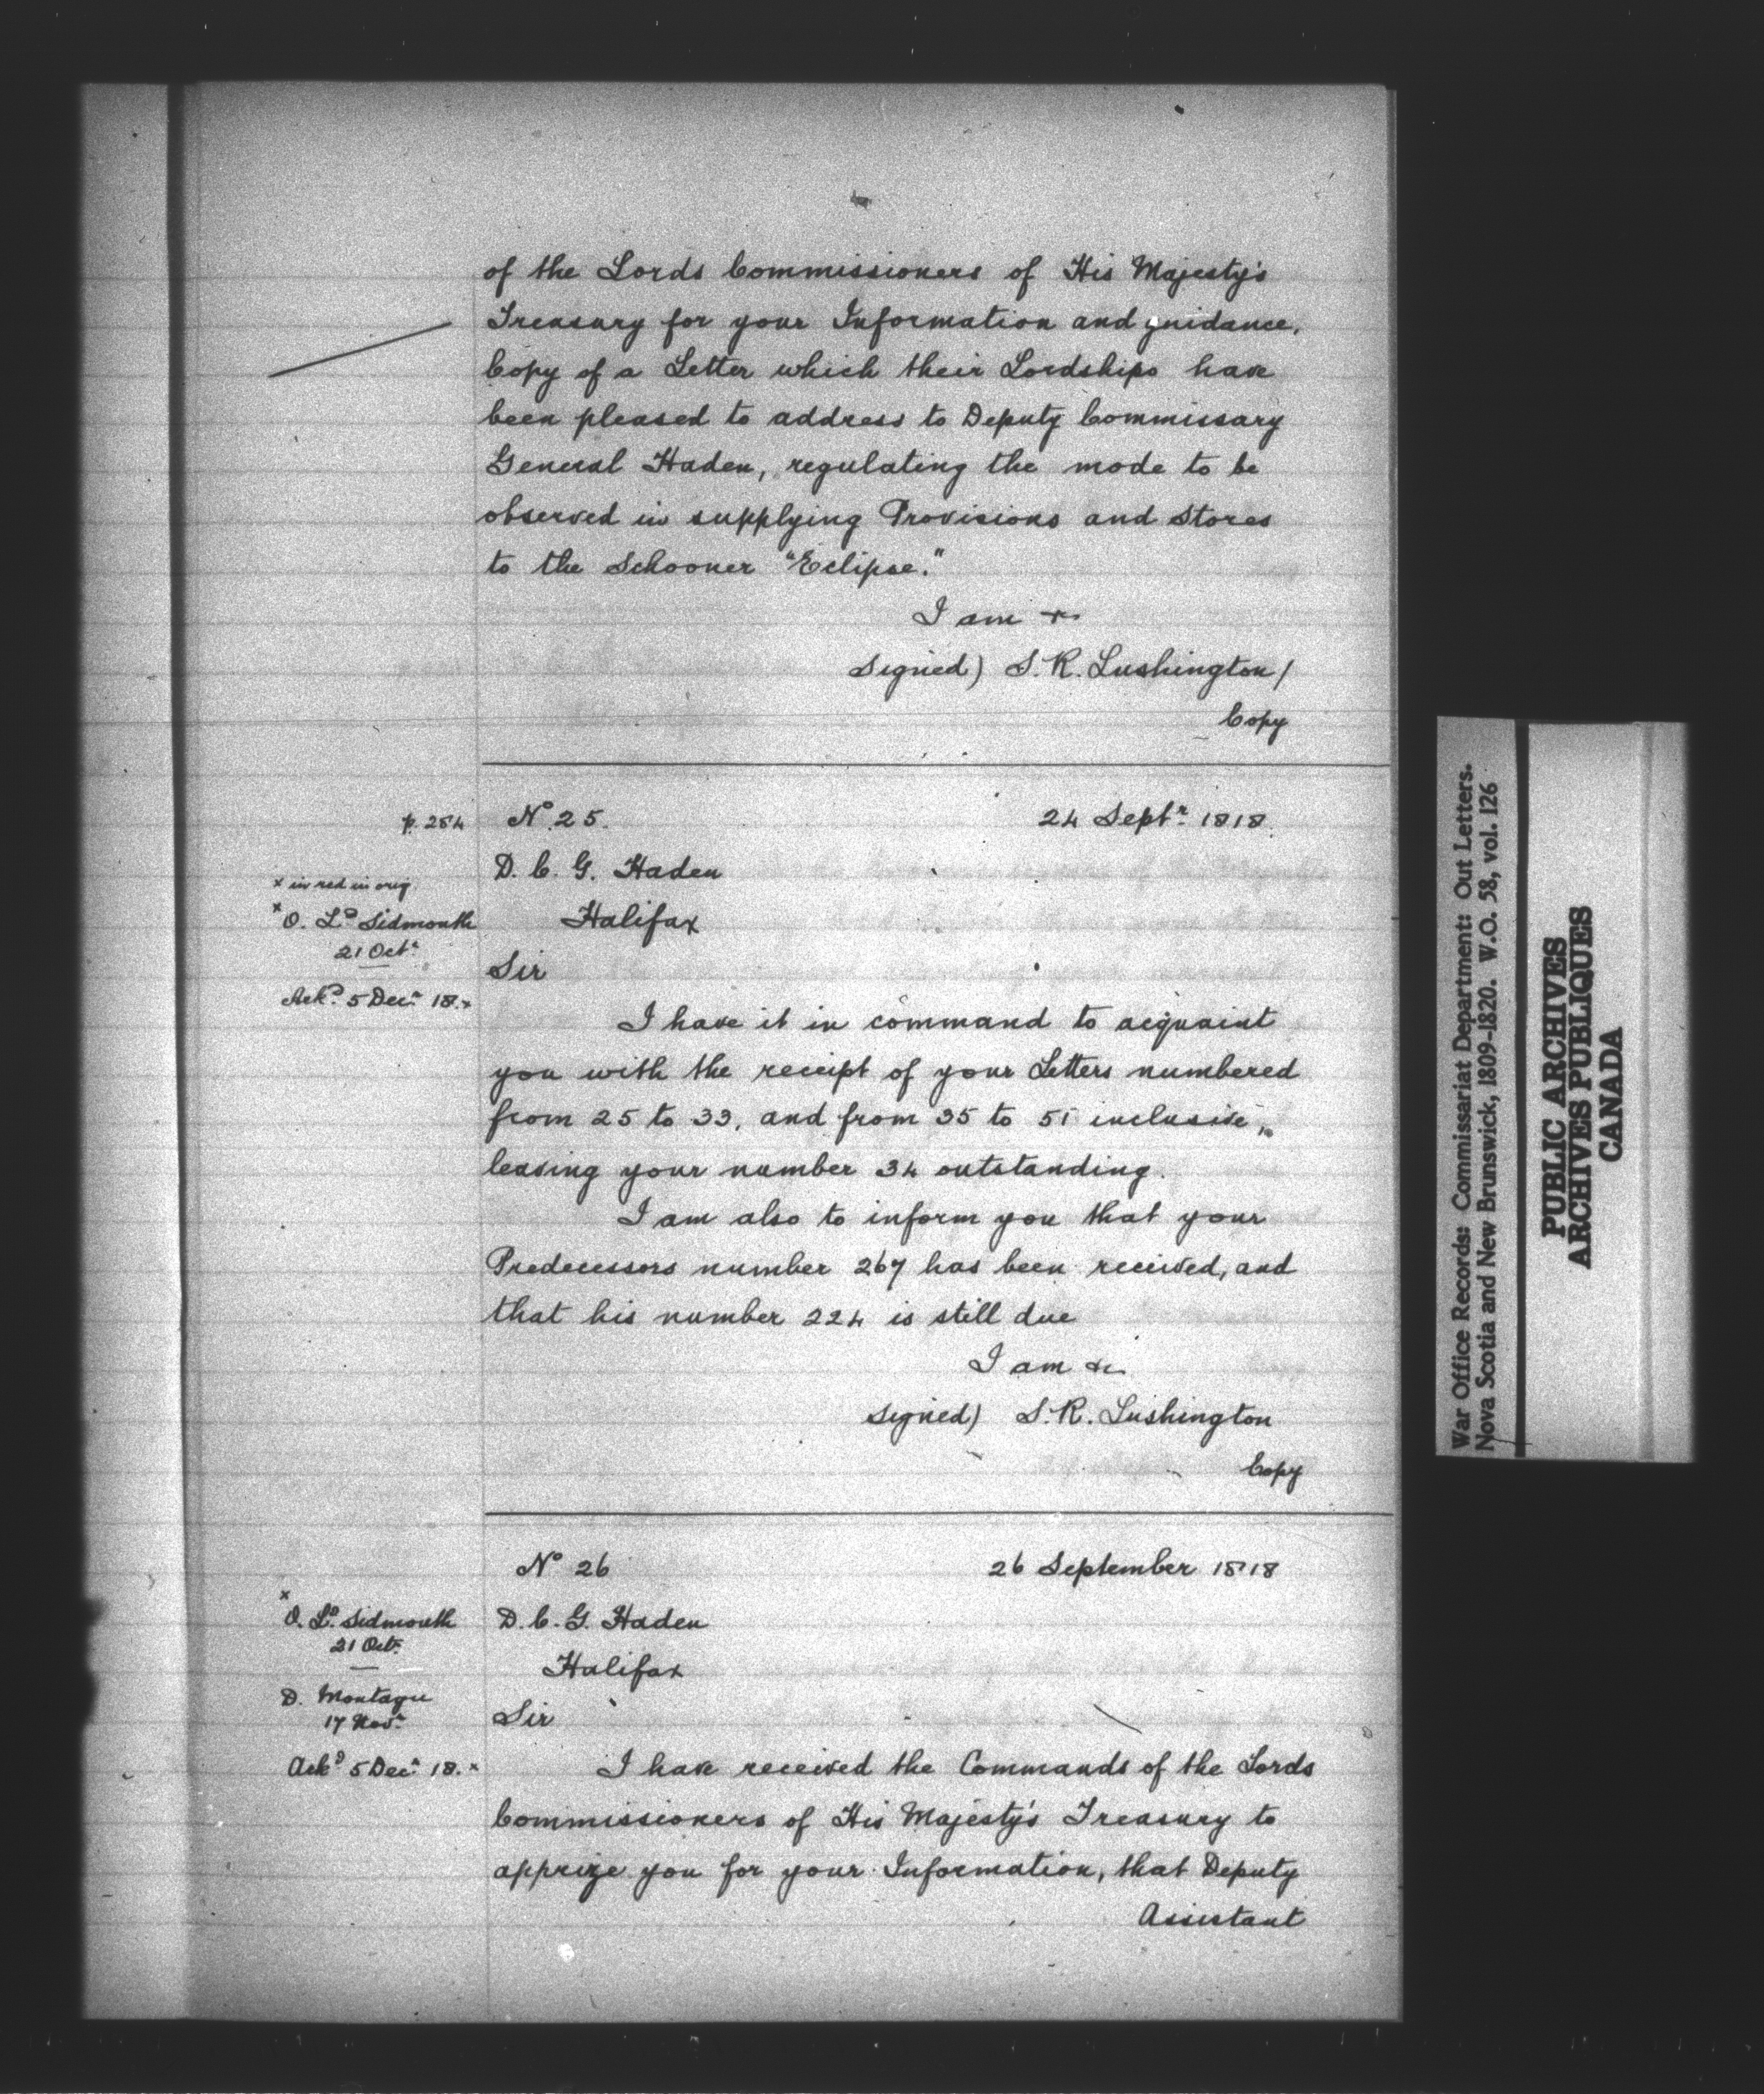 of the Lords Commissioners of His Majesty's
Treasury for your Information and guidance,
Copy of a Letter which their Lordships have
been pleased to address to Deputy Commissary
General Haden, regulating the mode to be
observed in supplying Provisions and Stores
to the Schooner "Eclipse."
I am &c
Signed) S. R. Lushington /
Copy
p. 284 No. 25. 24 Septr. 1818.
D. C. G. Haden
x in red in orig.
x O. Ld Sidmouth
21 Octr.
Halifax
Sir
Ackd. 5 Decr. 18. x
I have it in command to acquaint
you with the receipt of your Letters numbered
from 25 to 33, and from 35 to 51 inclusive,
leaving your number 34 outstanding.
I am also to inform you that your
Predecessors number 267 has been received, and
that his number 224 is still due
I am &c
Signed) S. R. Lushington
Copy
No 26 26 September 1818
x
O. Ld. Sidmouth
21 Octr.
D. C. G. Haden
Halifax
D. Montagu
17 Novr.
Sir
Ackd 5 Decr. 18. x
I have received the Commands of the Lords
Commissioners of His Majesty's Treasury to
apprize you for your Information, that Deputy
Assistant
War Office Records: Commissariat Department: Out Letters.
Nova Scotia and New Brunswick, 1809-1820. W.O. 58, vol. 126
PUBLIC ARCHIVES
ARCHIVES PUBLIQUES
CANADA